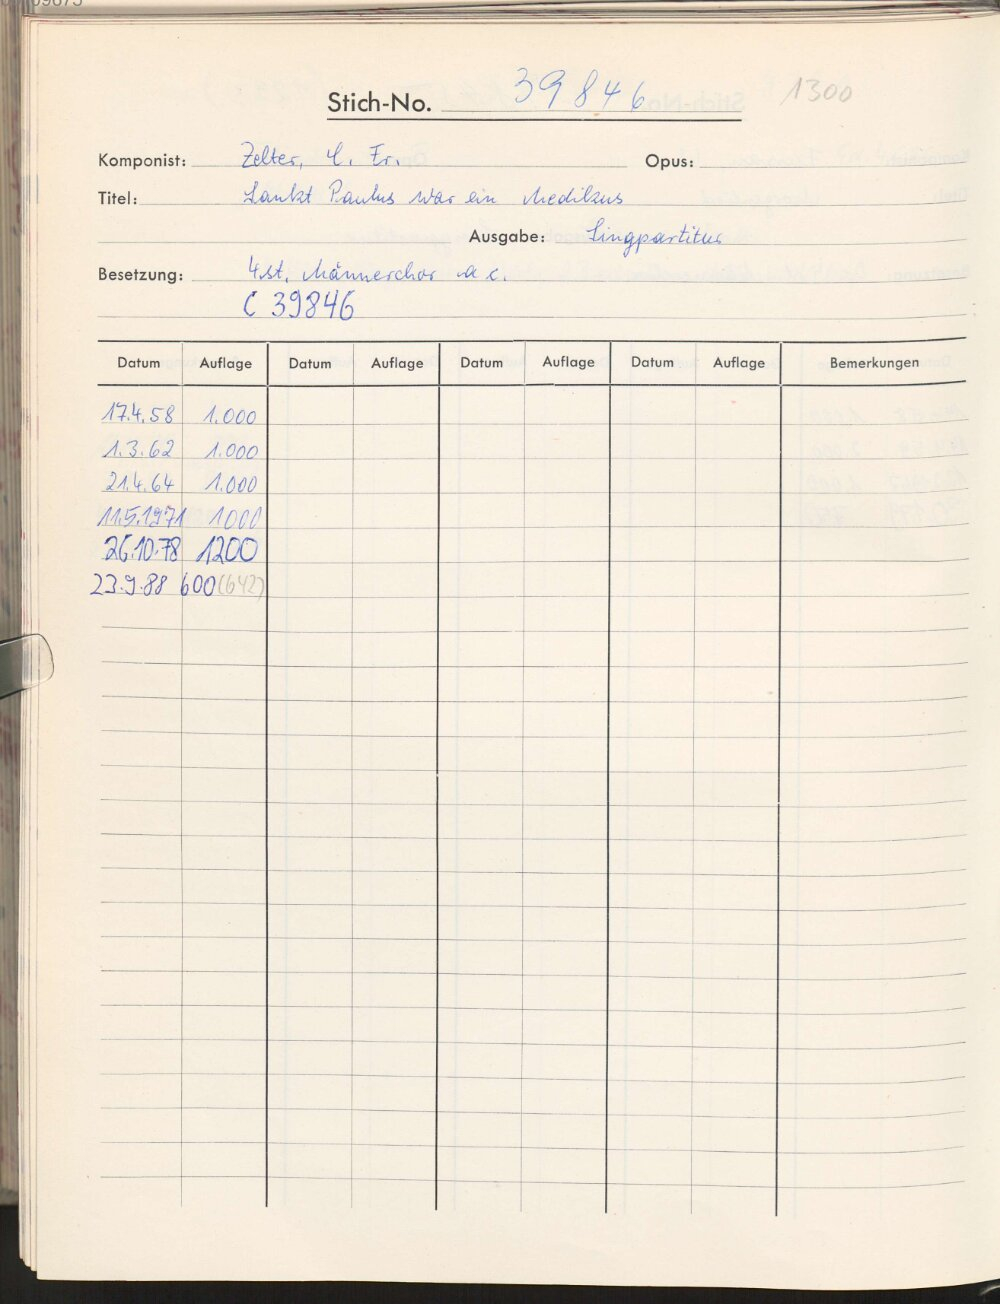 Stich-No. 39846 1300
Komponist: Zelter, C. Fr. Opus:
Titel: Sankt Paulus war ein Medikus
Ausgabe: Singpartitur
Besetzung: 4st. Männerchor a c.
C 39846
Datum Auflage Datum Auflage Datum Auflage Datum Auflage Bemerkungen
17.4.58 1.000
1.3.62 1.000
21.4.64 1.000
11.5.1971 1000
26.10.78 1200
23.9.88 600 (642)